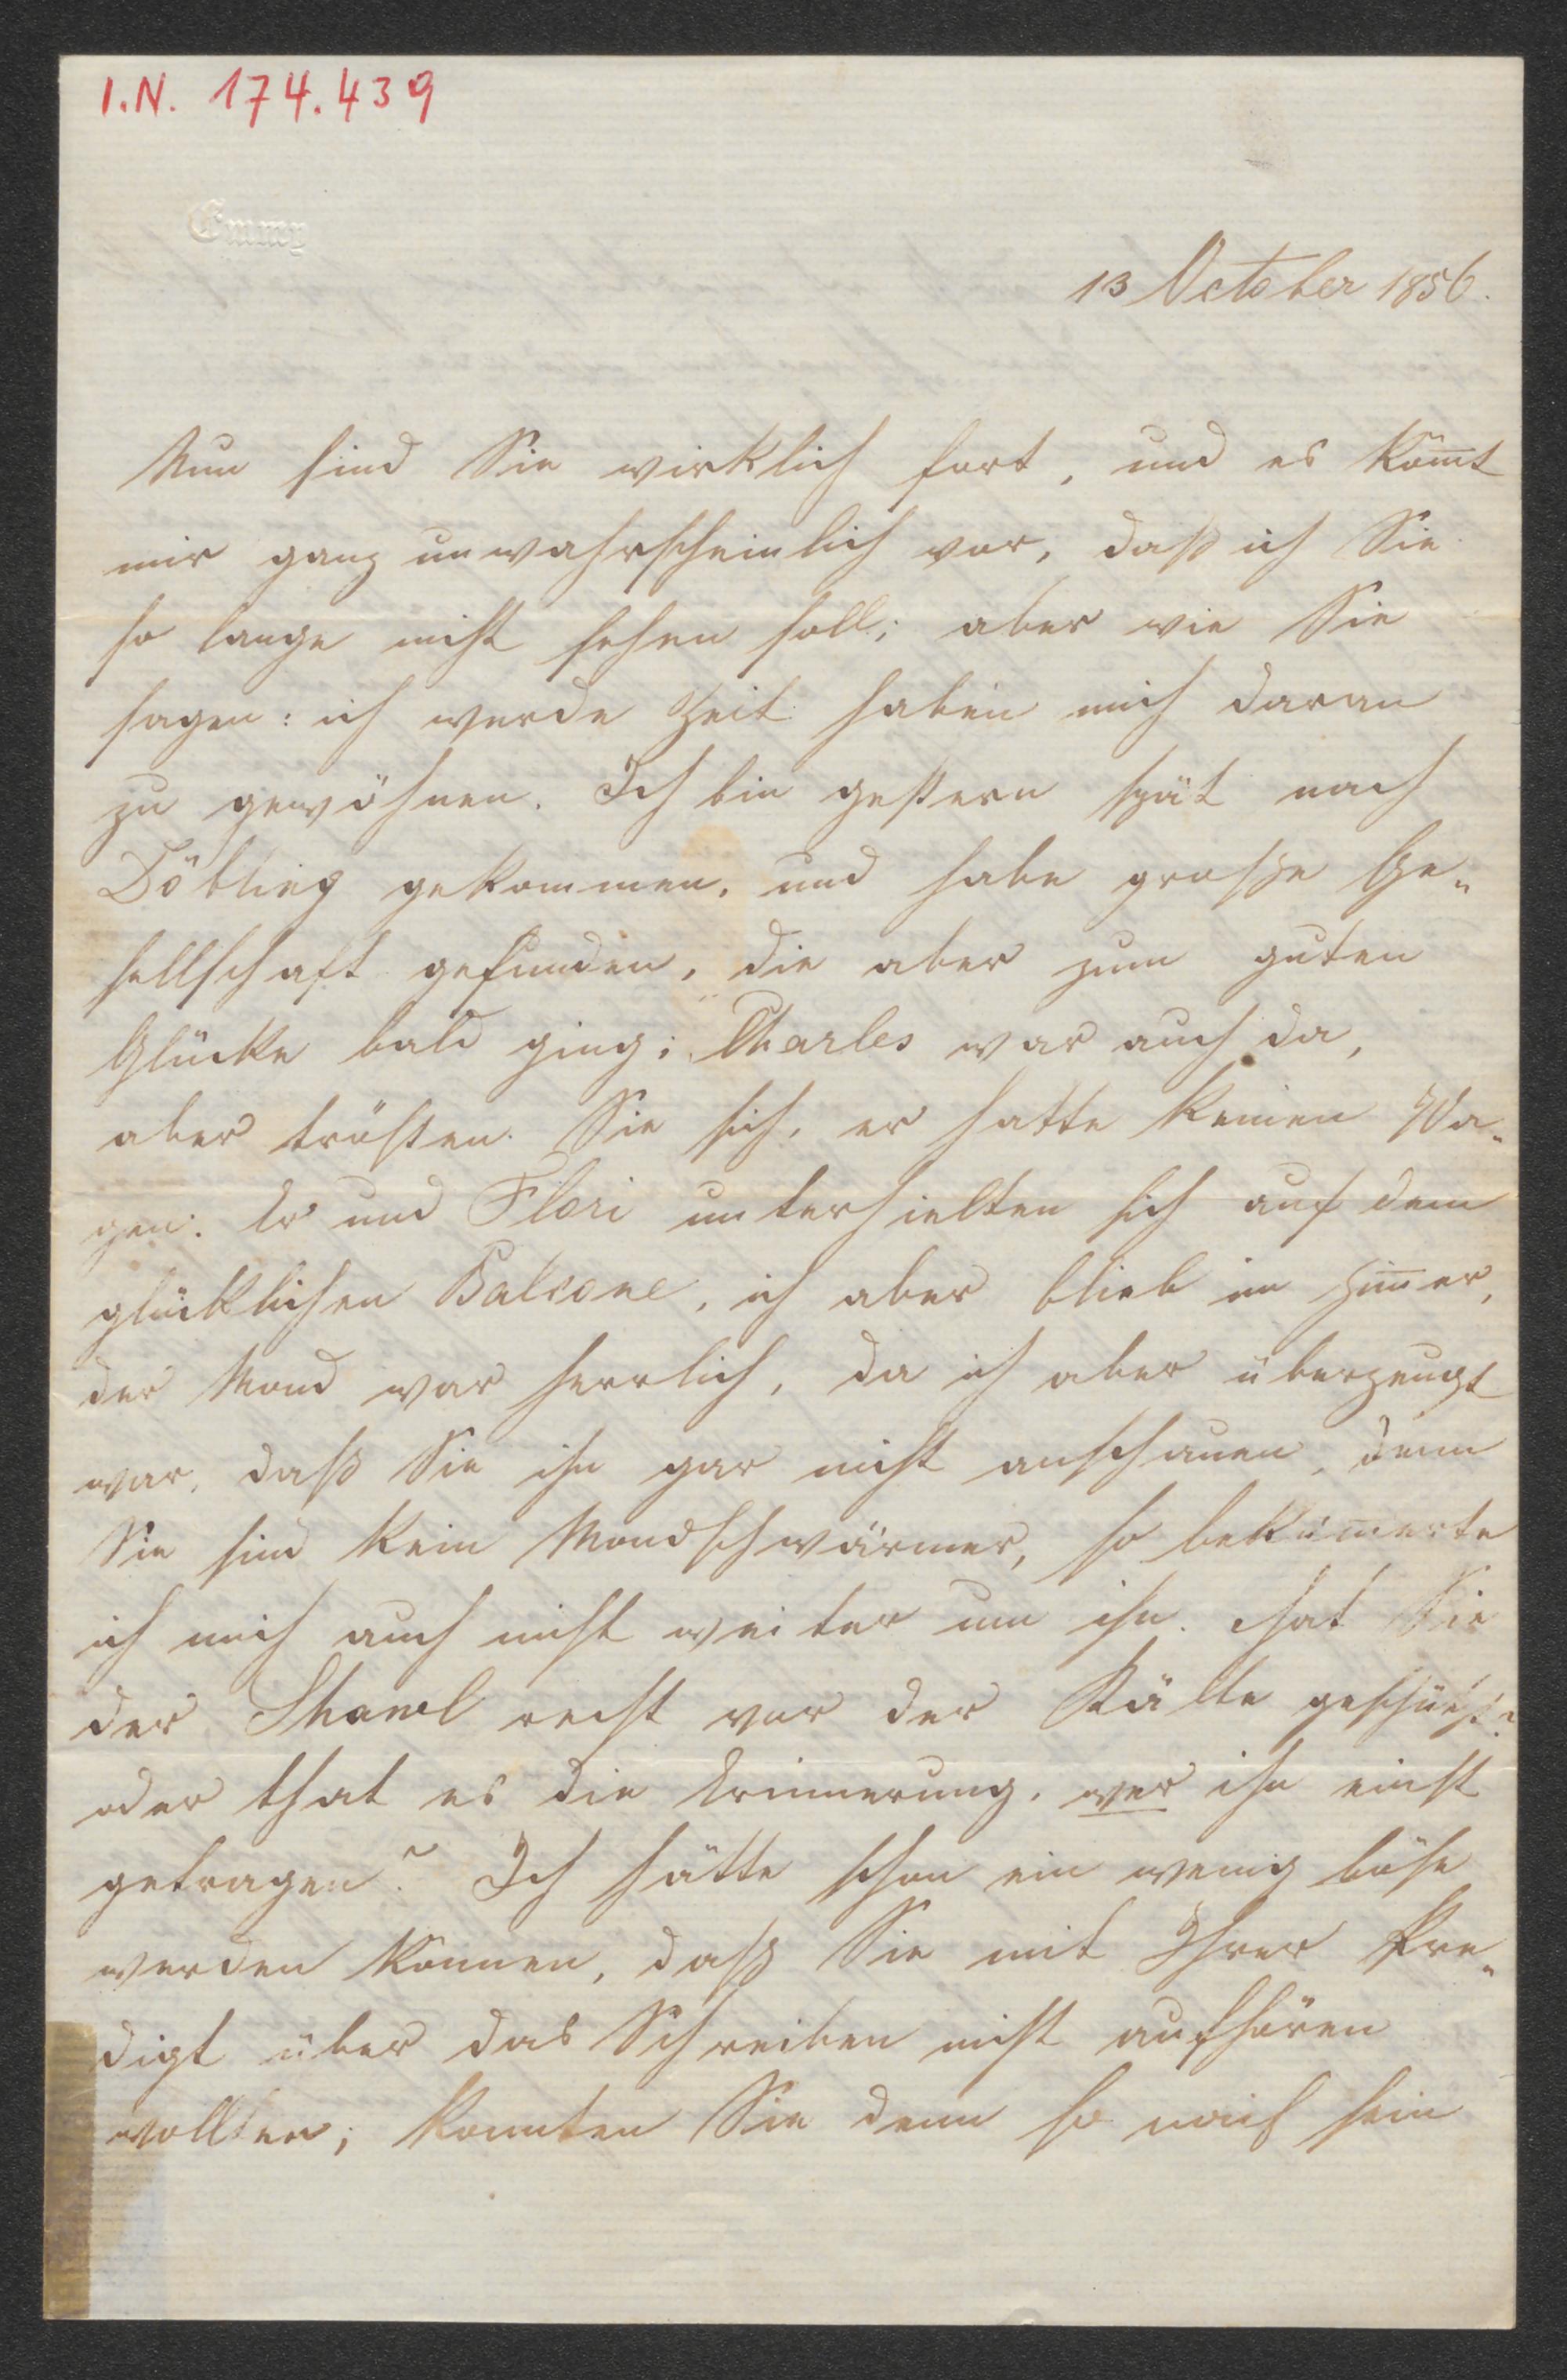 I.N. 174.439
Emmy
13 October 1856.
Nun sind Sie wirklich fort, und es kom̅t
mir ganz unwahrscheinlich vor, daß ich Sie
so lange nicht sehen soll; aber wie Sie
sagen: ich werde Zeit haben mich daran
zu gewöhnen. Ich bin gestern spät nach
Döbling gekommen, und habe große Ge-
sellschaft gefunden, die aber zum guten
Glücke bald ging; Charles war auch da,
aber trösten Sie sich, er hatte keinen Wa-
gen. Er und Flori unterhielten sich auf dem
glücklichen Balcone, ich aber blieb im Zim̅er,
der Mond war herrlich, da ich aber überzeugt
war, daß Sie ihn gar nicht anschauen, denn
Sie sind kein Mondschwärmer, so beküm̅erte
ich mich auch nicht weiter um ihn. Hat Sie
der Shawl recht vor der Kälte geschützt?
oder that es die Erinnerung, wer ihn einst
getragen? Ich hätte schon ein wenig böse
werden können, daß Sie mit Ihrer Pre-
digt über das Schreiben nicht aufhören
wollten; konnten Sie denn so naif sein